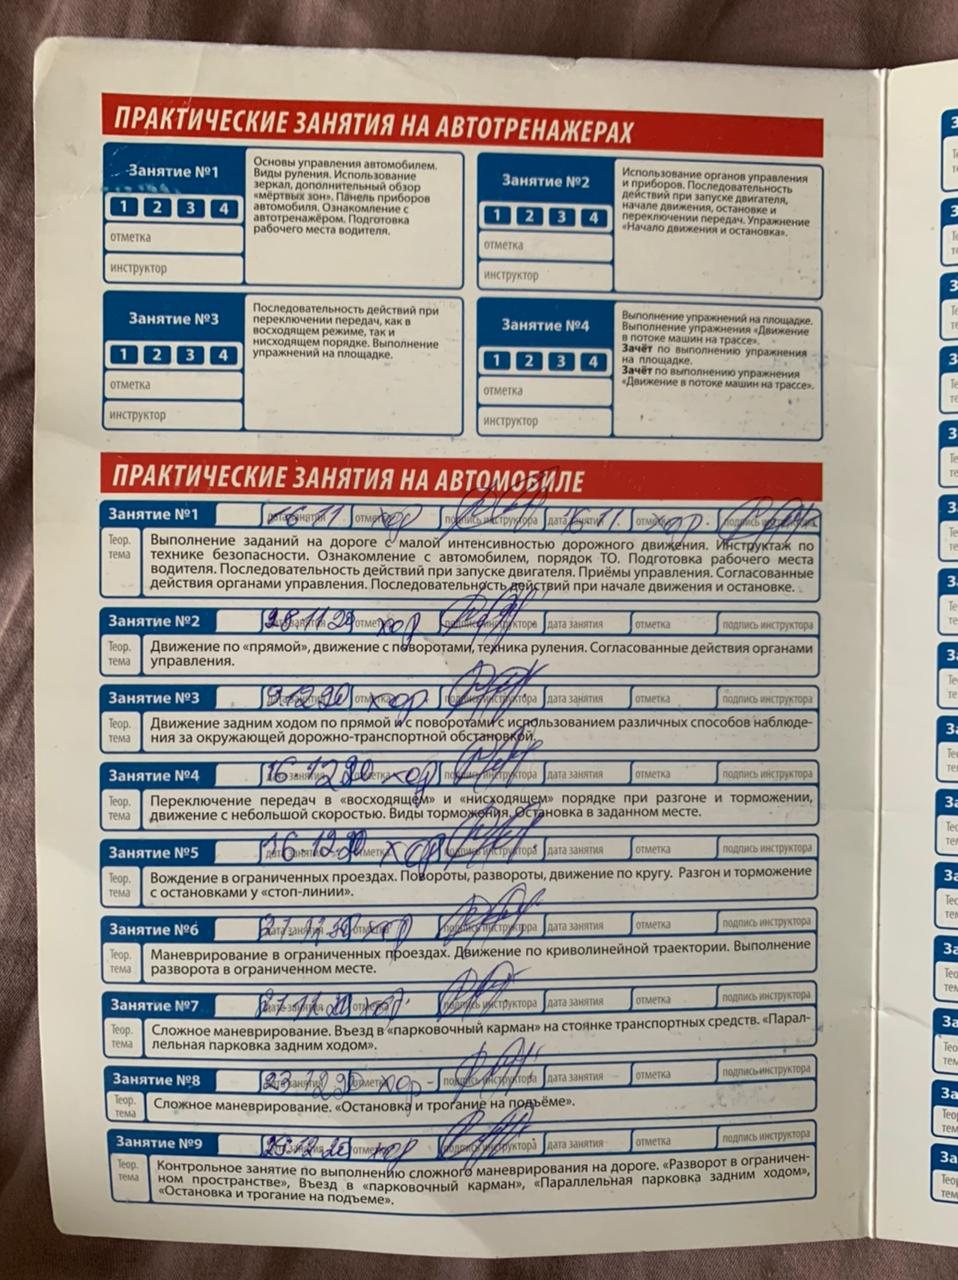 ПРАКТИЧЕСКИЕ ЗАНЯТИЯ НА АВТОТРЕНАЖЕРАХ
Занятие №1
1 2 3 4
отметка
инструктор
Основы управления автомобилем.
Виды руления. Использование
зеркал, дополнительный обзор
«мёртвых зон». Панель приборов
автомобиля. Ознакомление с
автотренажёром. Подготовка
рабочего места водителя.
Занятие №2
1 2 3 4
отметка
инструктор
Использование органов управления
и приборов. Последовательность
действий при запуске двигателя,
начале движения, остановке и
переключении передач. Упражнение
«Начало движения и остановка».
Занятие №3
1 2 3 4
отметка
инструктор
Последовательность действий при
переключении передач, как в
восходящем режиме, так и
нисходящем порядке. Выполнение
упражнений на площадке.
Занятие №4
1 2 3 4
отметка
инструктор
Выполнение упражнений на площадке.
Выполнение упражнения «Движение
в потоке машин на трассе».
Зачёт по выполнению упражнения
на площадке.
Зачёт по выполнению упражнения
«Движение в потоке машин на трассе».
ПРАКТИЧЕСКИЕ ЗАНЯТИЯ НА АВТОМОБИЛЕ
Занятие №1 дата занятия 16.11 отметка хор подпись инструктора дата занятия 16.11. отметка хор. подпись инструктора
Теор. тема
Выполнение заданий на дороге с малой интенсивностью дорожного движения. Инструктаж по
технике безопасности. Ознакомление с автомобилем, порядок ТО. Подготовка рабочего места
водителя. Последовательность действий при запуске двигателя. Приёмы управления. Согласованные
действия органами управления. Последовательность действий при начале движения и остановке.
Занятие №2 дата занятия 28.11.20 отметка хор подпись инструктора дата занятия отметка подпись инструктора
Теор. тема
Движение по «прямой», движение с поворотами, техника руления. Согласованные действия органами
управления.
Занятие №3 дата занятия отметка хор. подпись инструктора дата занятия отметка подпись инструктора
Теор. тема
Движение задним ходом по прямой и с поворотами с использованием различных способов наблюде-
ния за окружающей дорожно-транспортной обстановкой.
Занятие №4 дата занятия 16.12.20 отметка хор подпись инструктора дата занятия отметка подпись инструктора
Теор. тема
Переключение передач в «восходящем» и «нисходящем» порядке при разгоне и торможении,
движение с небольшой скоростью. Виды торможения. Остановка в заданном месте.
Занятие №5 дата занятия 16.12.20 отметка хор подпись инструктора дата занятия отметка подпись инструктора
Теор. тема
Вождение в ограниченных проездах. Повороты, развороты, движение по кругу. Разгон и торможение
с остановками у «стоп-линии».
Занятие №6 дата занятия отметка хор подпись инструктора дата занятия отметка подпись инструктора
Теор. тема
Маневрирование в ограниченных проездах. Движение по криволинейной траектории. Выполнение
разворота в ограниченном месте.
Занятие №7 дата занятия отметка хор. подпись инструктора дата занятия отметка подпись инструктора
Теор. тема
Сложное маневрирование. Въезд в «парковочный карман» на стоянке транспортных средств. «Парал-
лельная парковка задним ходом».
Занятие №8 дата занятия 23.12.20 отметка хор- подпись инструктора дата занятия отметка подпись инструктора
Теор. тема
Сложное маневрирование. «Остановка и трогание на подъёме».
Занятие №9 дата занятия отметка хор подпись инструктора дата занятия отметка подпись инструктора
Теор. тема
Контрольное занятие по выполнению сложного маневрирования на дороге. «Разворот в ограничен-
ном пространстве», Въезд в «парковочный карман», «Параллельная парковка задним ходом»,
«Остановка и трогание на подъеме».